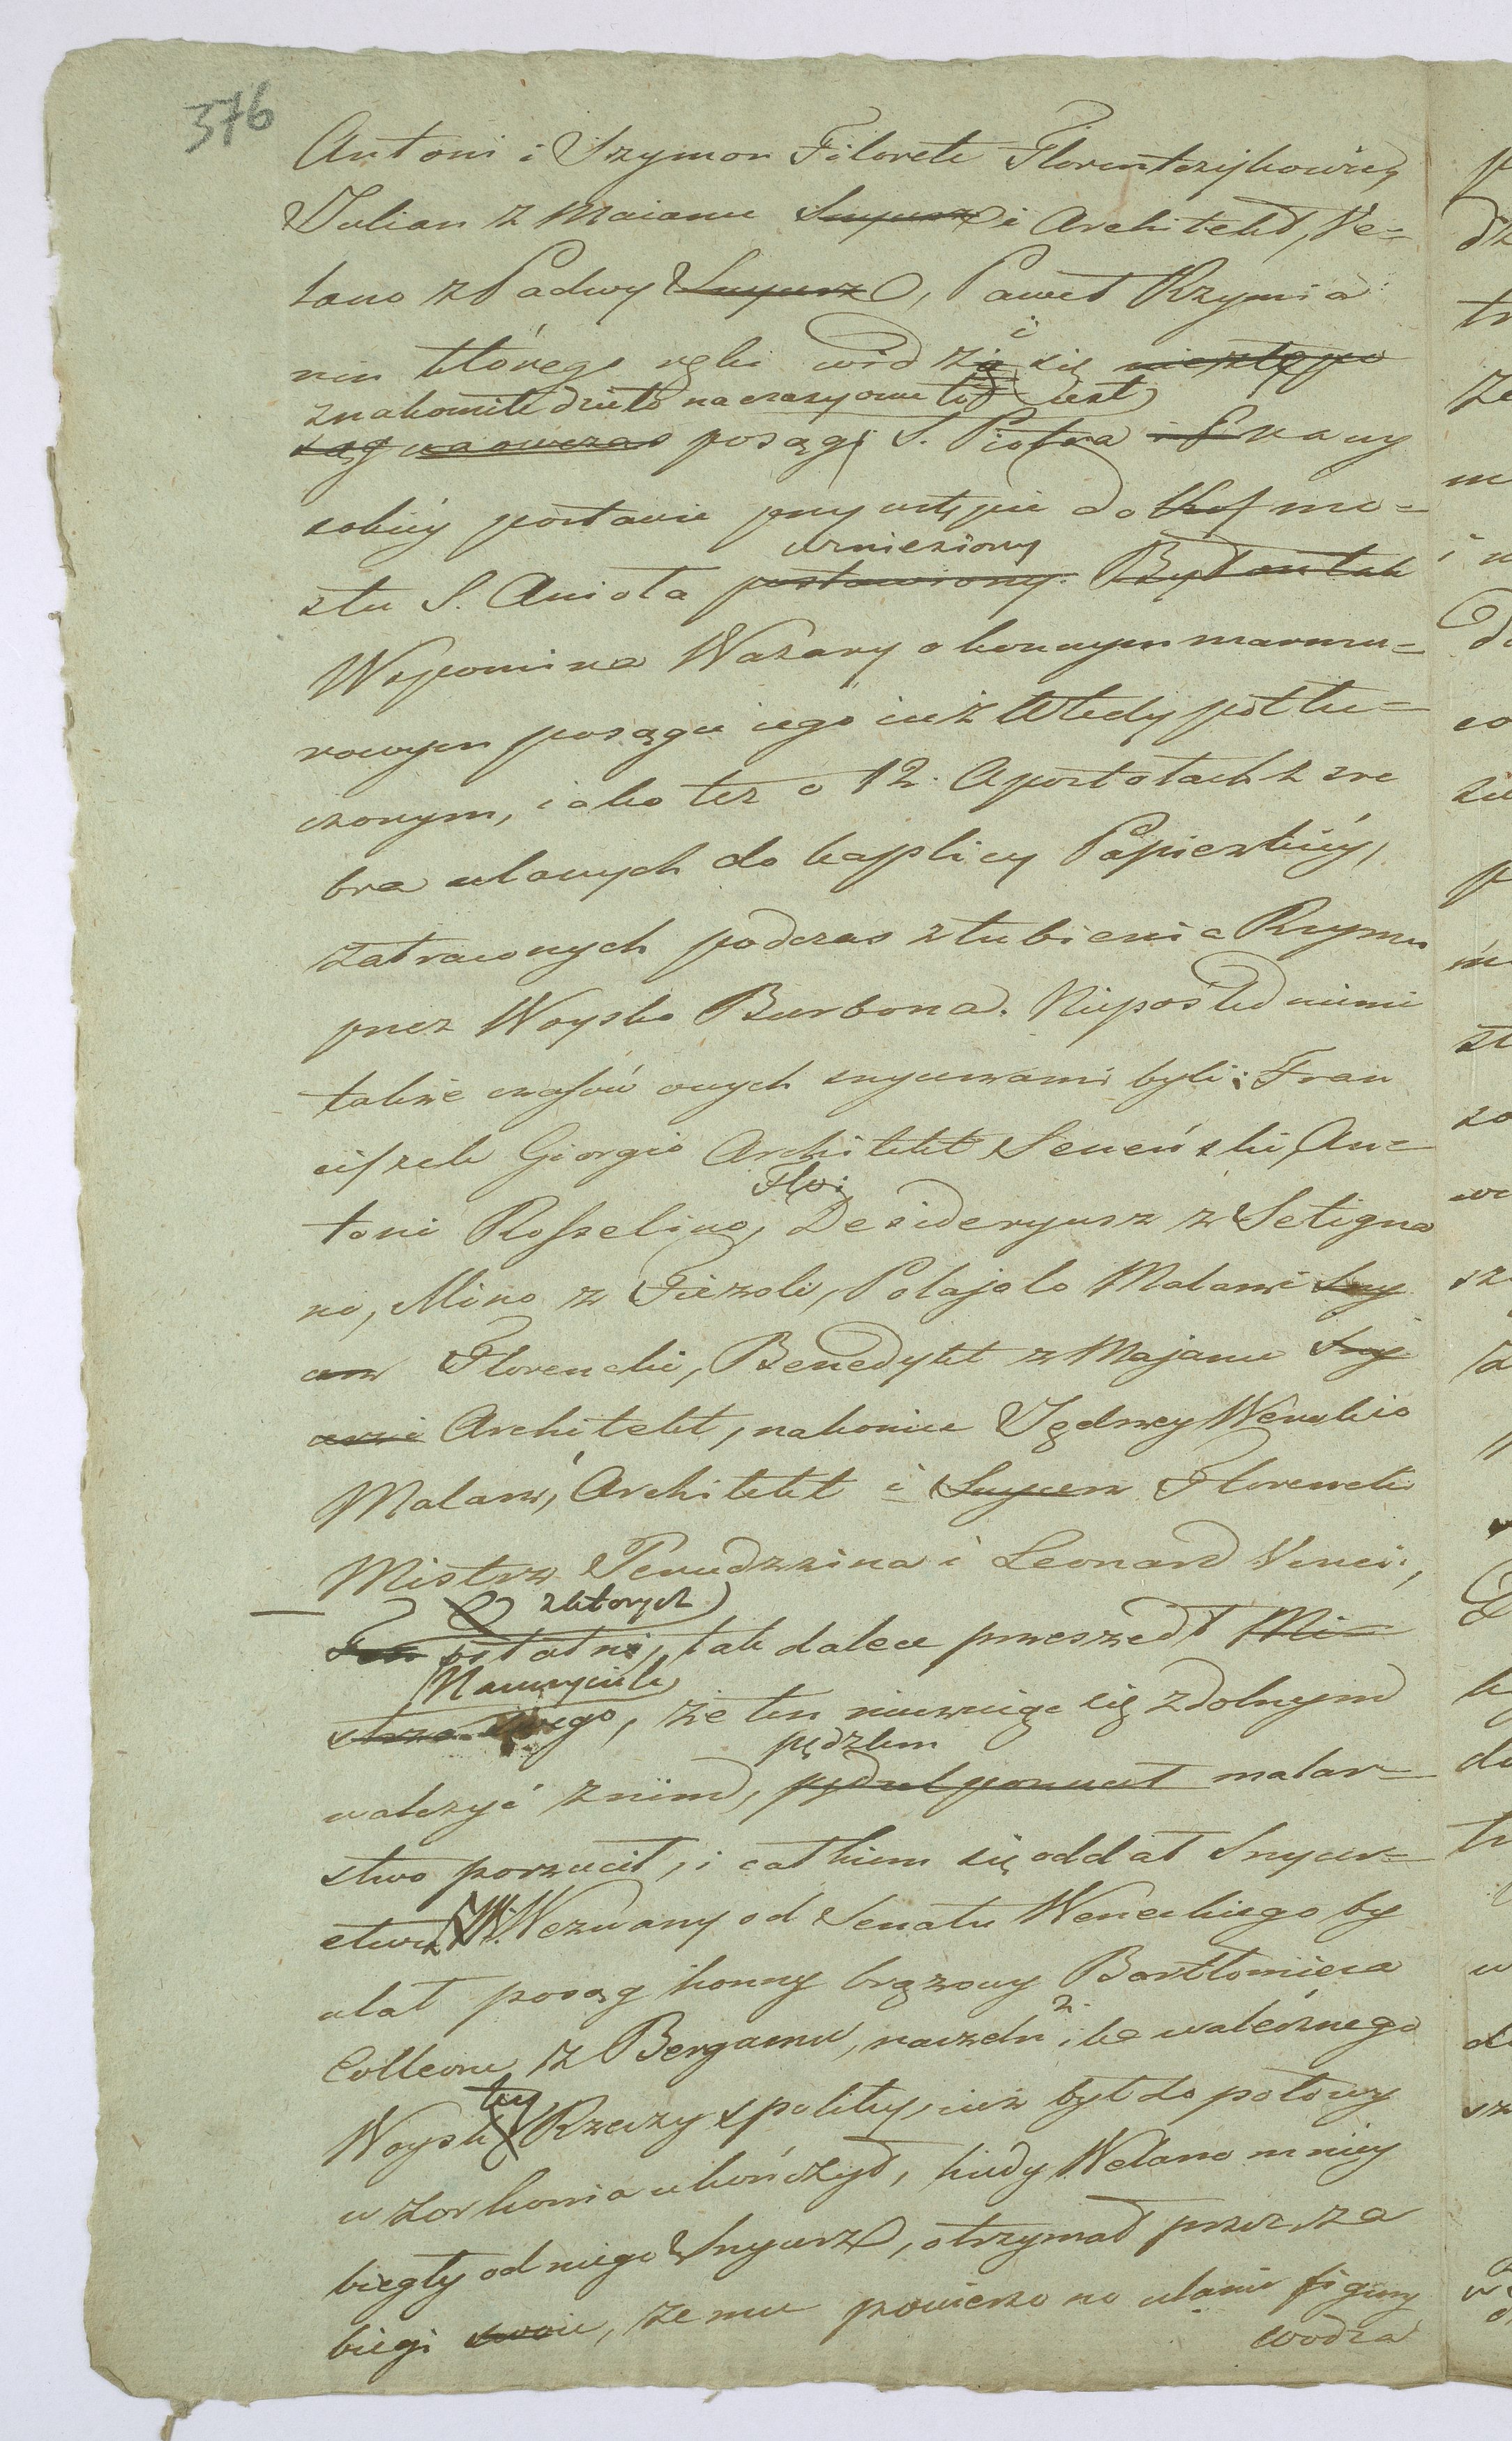 376
Antoni i Szymon Filarete Florentczykowie,
Julian z Maianu Snycerz i Architekt, Ve=
lano z Padwy Snycerz, Paweł Rzymia
nin którego ręki widzi się
znakomite dzieło na czasy owe to jest
są na owczas posągi S. Piotra i S. Pawła
sobiéy postawie przy wstępie do mo=
wzniesiony
stu S. Anioła postawiony. Był on tak
Wspomina Wazary o konnym marmu=
rowym posągu iego iuż wtedy potłu=
czonym, iako też o 12. Apostołach z sre
bra ulanych do kaplicy Papiezkiéy,
zatraconych podczas złubienia Rzymu
przez Woysko Burbona. Niepoślednimi
także czasów owych snycerzami byli: Fran
ciszek Giorgio Architekt Seneński, An=
toni Rosselino, Desideryusz z Setigna
no, Mino z Fiezoli, Polajolo Malarz i Sny
cerz Florencki, Benedykt z Majanu Sny
cerz i Architekt, nakoniec Jędrzey Werokio
Malarz, Architekt i Snycerz Florencki
Mistrz Perudzzina i Leonard Vinci,
z których
Ten ostatni, tak dalece przeszedł Mi=
Nauczyciela
strza swego, że ten niewidząc się zdolnym
pędzlem
walczyć z nim, pędzel porzucił malar=
stwo porzucił, i całkiem się oddał Snycer=
stwu. Wezwany od Senatu Weneckiego by
ulał posąg konny brązowy Bartłomieia
Colleone z Bergamu, naczelnika walecznego
Woysk téy Rzeczypospolitéy, iuż był do połowy
wzor konia ukończył, kiedy Welano mniéy
biegły od niego Snycerz, otrzymał przez za
biegi swoie, że mu powierzono ulanie figury
wodza